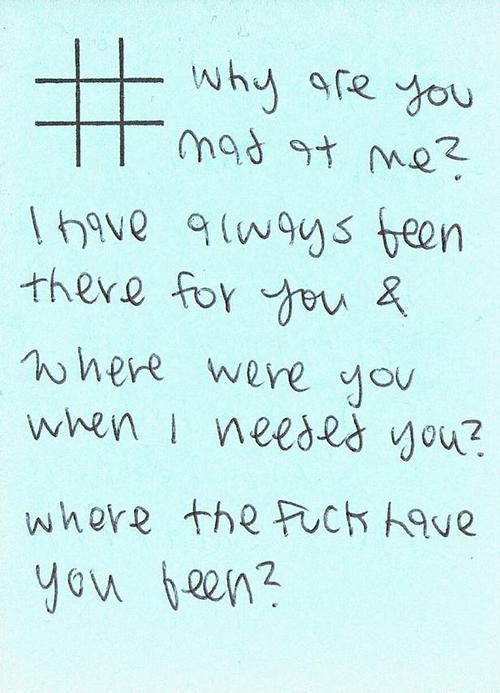 # why are you
mad at me?
I have always been
there for you &
where were you
when I needed you?
where the fuck have
you been?